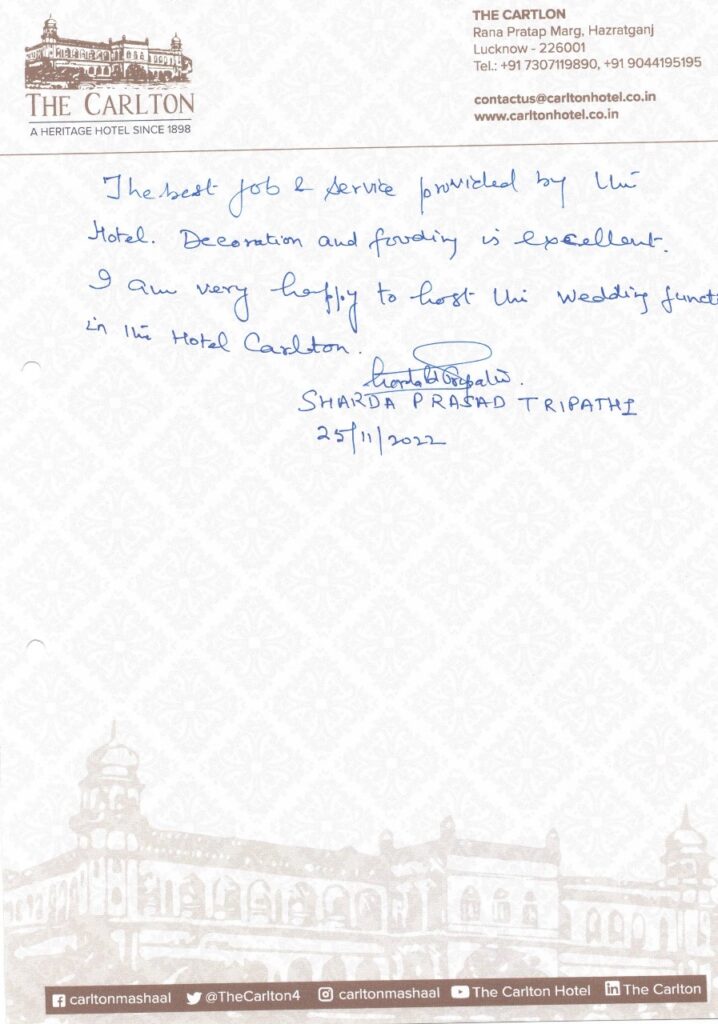 THE CARLTON
A HERITAGE HOTEL SINCE 1898
THE CARTLON
Rana Pratap Marg, Hazratganj
Lucknow - 226001
Tel.: +91 7307119890, +91 9044195195
contactus@carltonhotel.co.in
www.carltonhotel.co.in
The best job & service provided by this
Hotel. Decoration and fooding is excellent.
I am very happy to host this wedding funct
in this Hotel Carlton.
SHARDA PRASAD TRIPATHI
25/11/2022
carltonmashaal @TheCarlton4 carltonmashaal The Carlton Hotel The Carlton